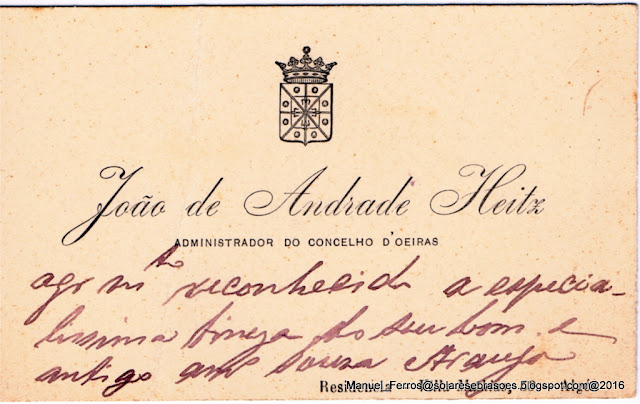 João de Andrade Heitz
ADMINISTRADOR DO CONCELHO D'OEIRAS
agr mto reconhecido a especia-
lissima fineza do seu bom e
antigo amo Souza Araujo
Residencia
Manuel Ferros@solaresebrasoes.blogspot.com@2016